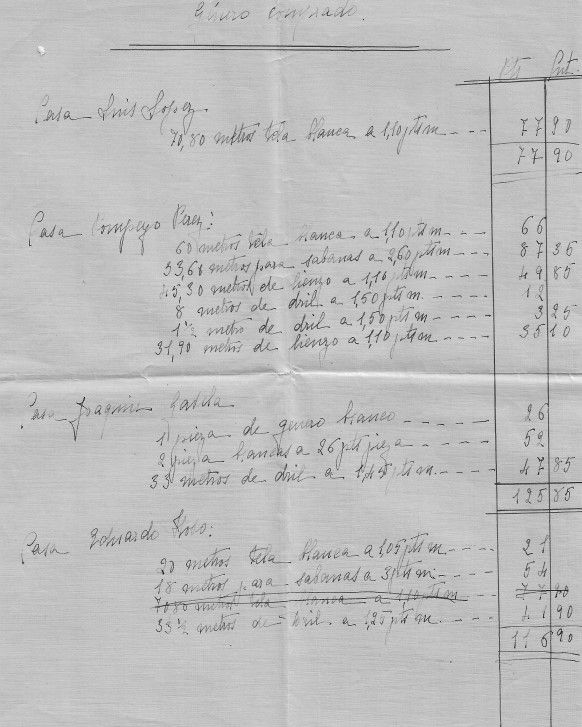 Género comprado.
Pts Cnt.
Casa Luis Lopez
70,80 metros tela blanca a 1,10 pts m. 77 90
77 90
Casa Pompeyo Perez:
60 metros tela blanca a 1,10 pts m 66
33,60 metros para sabanas a 2,60 pts m 87 36
45,30 metros de lienzo a 1,10 pts m. 49 85
8 metros de dril a 1,50 pts m. 12
1 ½ metro de dril a 1,50 pts m. 3 25
31,90 metros de lienzo a 1,10 pts m 35 10
Casa Joaquin
1 pieza de genero blanco 26
2 pieza blancas a 26 pts pieza 52
33 metros de dril a 1,45 pts m. 47 85
125 85
Casa Eduardo
20 metros tela blanca a 1,05 pts m. 21
18 metros para sabanas a 3 pts m. 54
70 80 metros tela blanca a 1,10 pts m. 77 90
33 ½ metros de dril a 1,25 pts m. 41 90
116 90